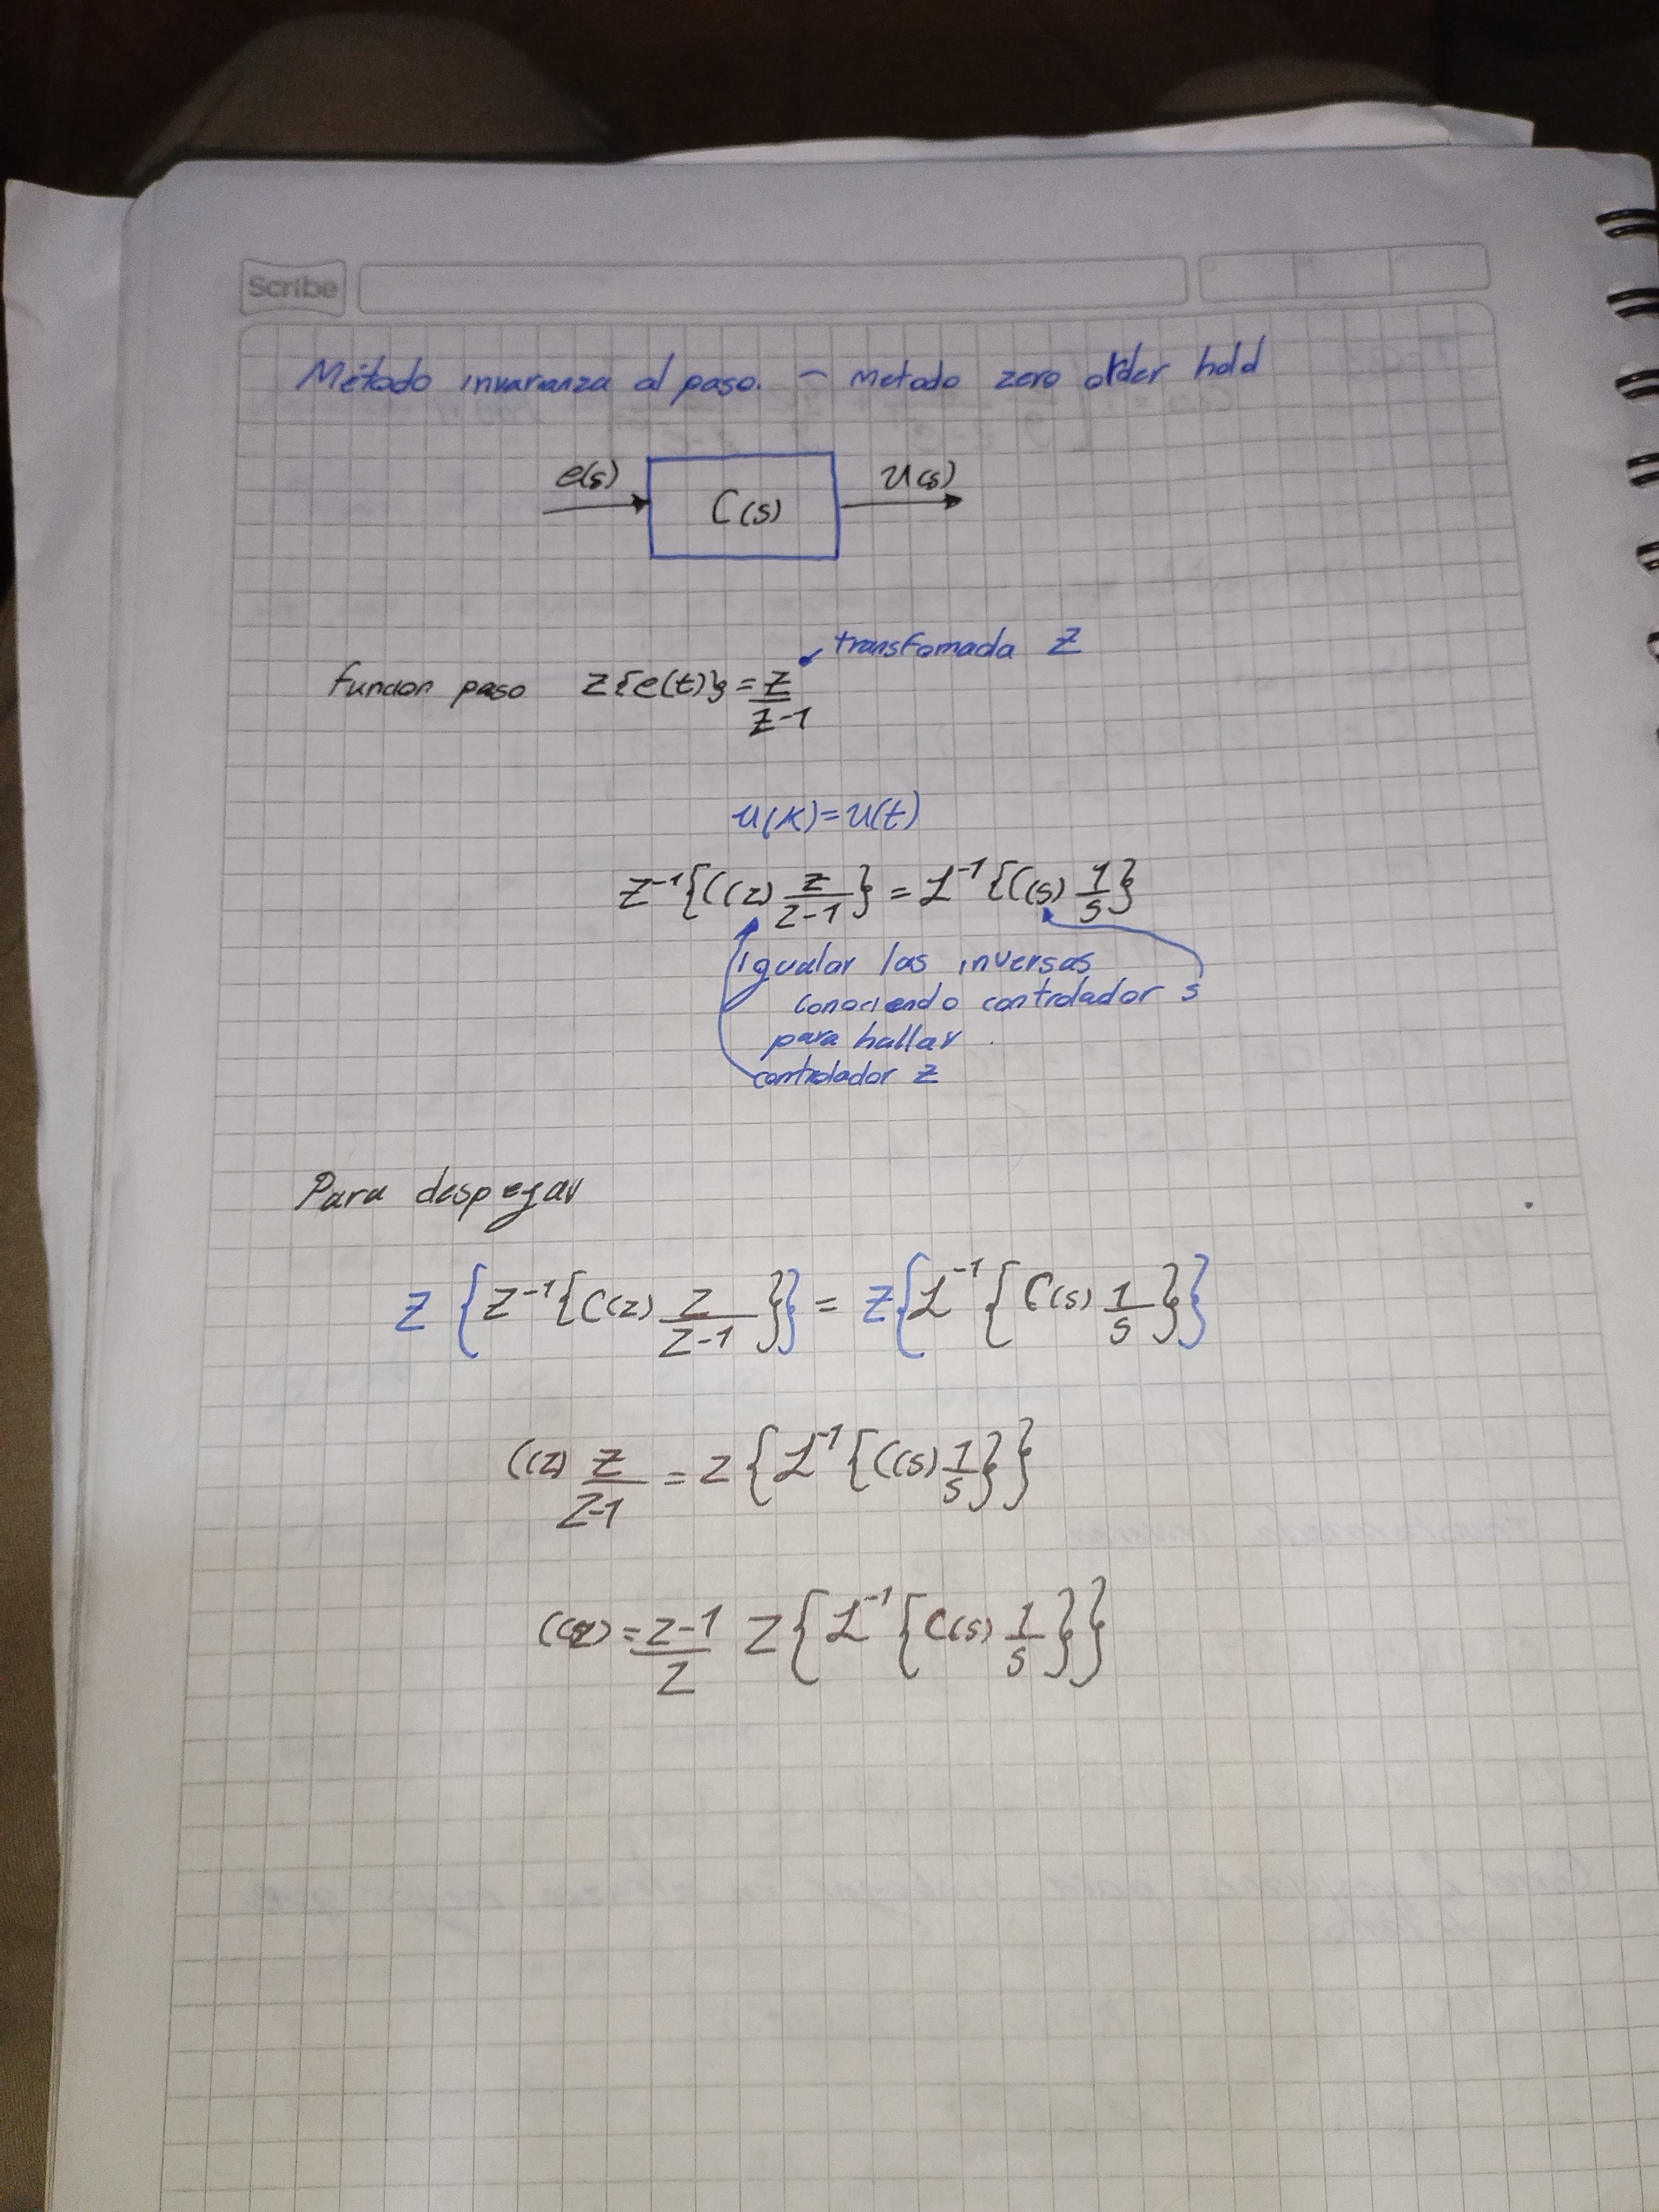 Scribe
Método invarianza al paso. - metodo zero order hold
e(s)
C(s)
U(s)
transfomada Z
funcion paso Z{e(t)} = z/(z-1)
u(k)=u(t)
Z⁻¹{C(z) z/(z-1)} = ℒ⁻¹{C(s) 1/s}
igualar las inversas
conociendo controlador s
para hallar
controlador z
Para despejar
Z{Z⁻¹{C(z) z/(z-1)}} = Z{ℒ⁻¹{C(s) 1/s}}
C(z) z/(z-1) = Z{ℒ⁻¹{C(s) 1/s}}
C(z) = (z-1)/z Z{ℒ⁻¹{C(s) 1/s}}